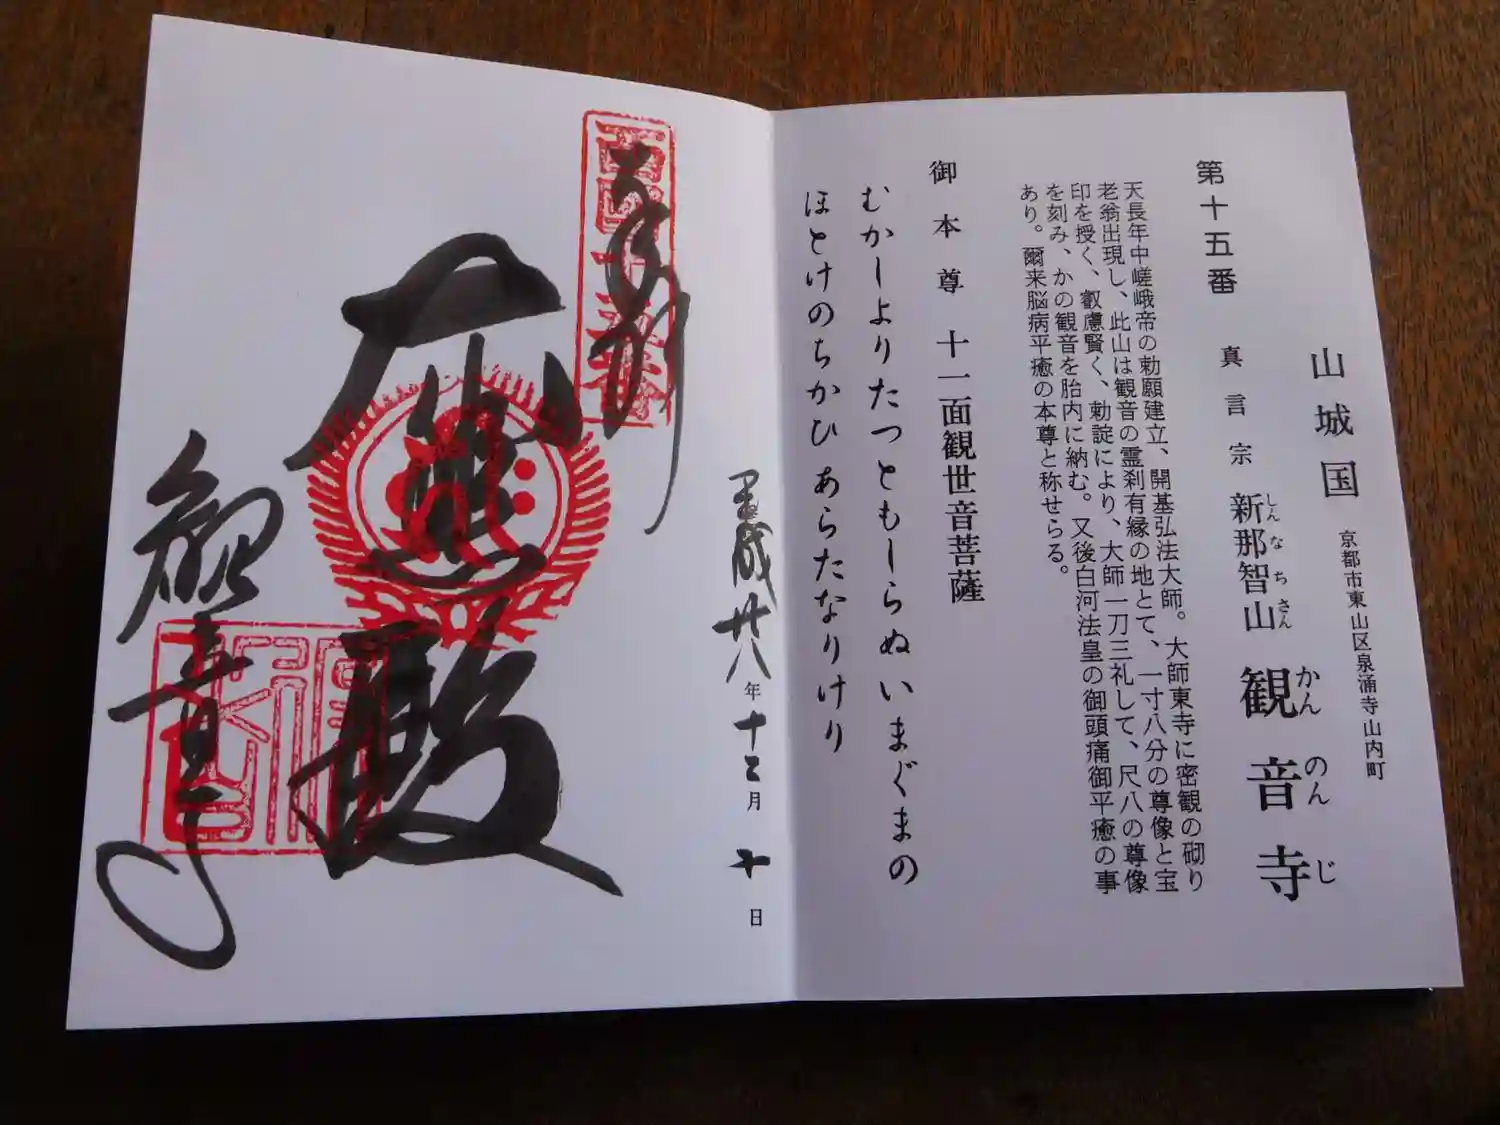 山城国 京都市東山区泉涌寺山内町
第十五番 真言宗 新那智山 観音寺
しんなちさん かんのんじ
天長年中嵯峨帝の勅願建立、開基弘法大師。大師東寺に密観の砌り
老翁出現し、此山は観音の霊刹有縁の地とて、一寸八分の尊像と宝
印を授く、叡慮賢く、勅諚により、大師一刀三礼して、尺八の尊像
を刻み、かの観音を胎内に納む。又後白河法皇の御頭痛御平癒の事
あり。爾来脳病平癒の本尊と称せらる。
御本尊 十一面観世音菩薩
むかしよりたつともしらぬいまぐまの
ほとけのちかひあらたなりけり
平成廿八年十二月十日
奉拝
西国十五番
大悲殿
観音寺